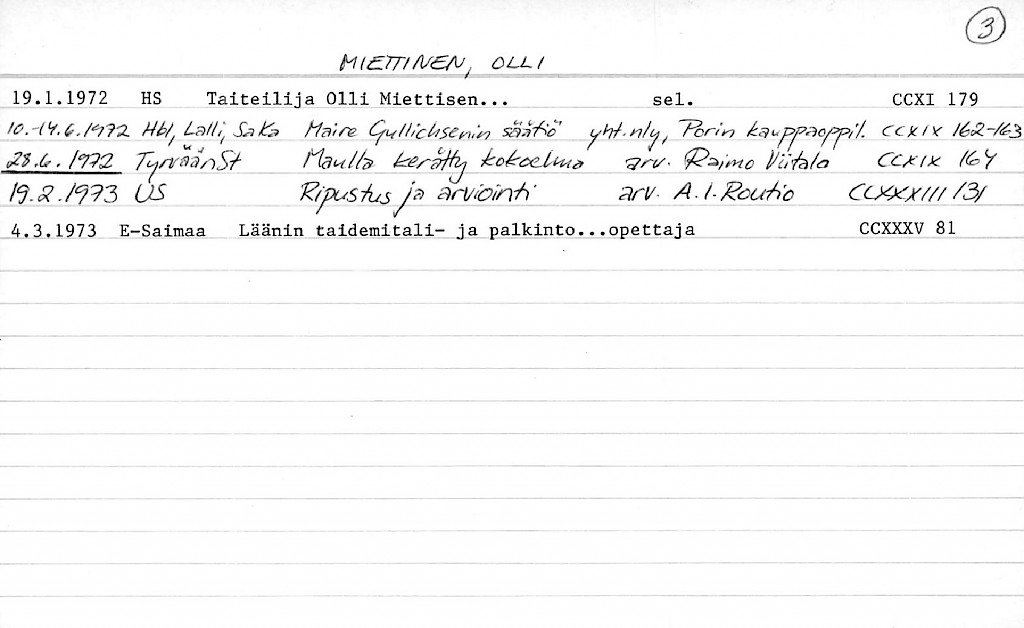 3
MIETTINEN, OLLI
19.1.1972 HS Taiteilija Olli Miettisen... sel. CCXI 179
10.-14.6.1972 Hbl, Lalli, SaKa Maire Gullichsenin säätiö yht.nly, Porin kauppaoppil. CCXIX 162-163
28.6.1972 TyrväänSt Maulla kerätty kokoelma arv. Raimo Viitala CCXIX 164
19.2.1973 US Ripustus ja arviointi arv. A.I.Routio CCXXXIII 131
4.3.1973 E-Saimaa Läänin taidemitali- ja palkinto...opettaja CCXXXV 81